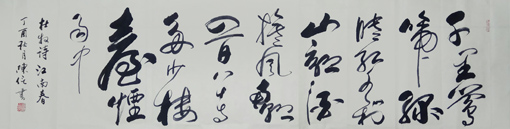 千里鶯
啼綠
映紅水村
山郭酒
旗風南朝
四百八十寺
多少樓
臺煙
雨中
杜牧诗江南春
丁酉秋月陳
書